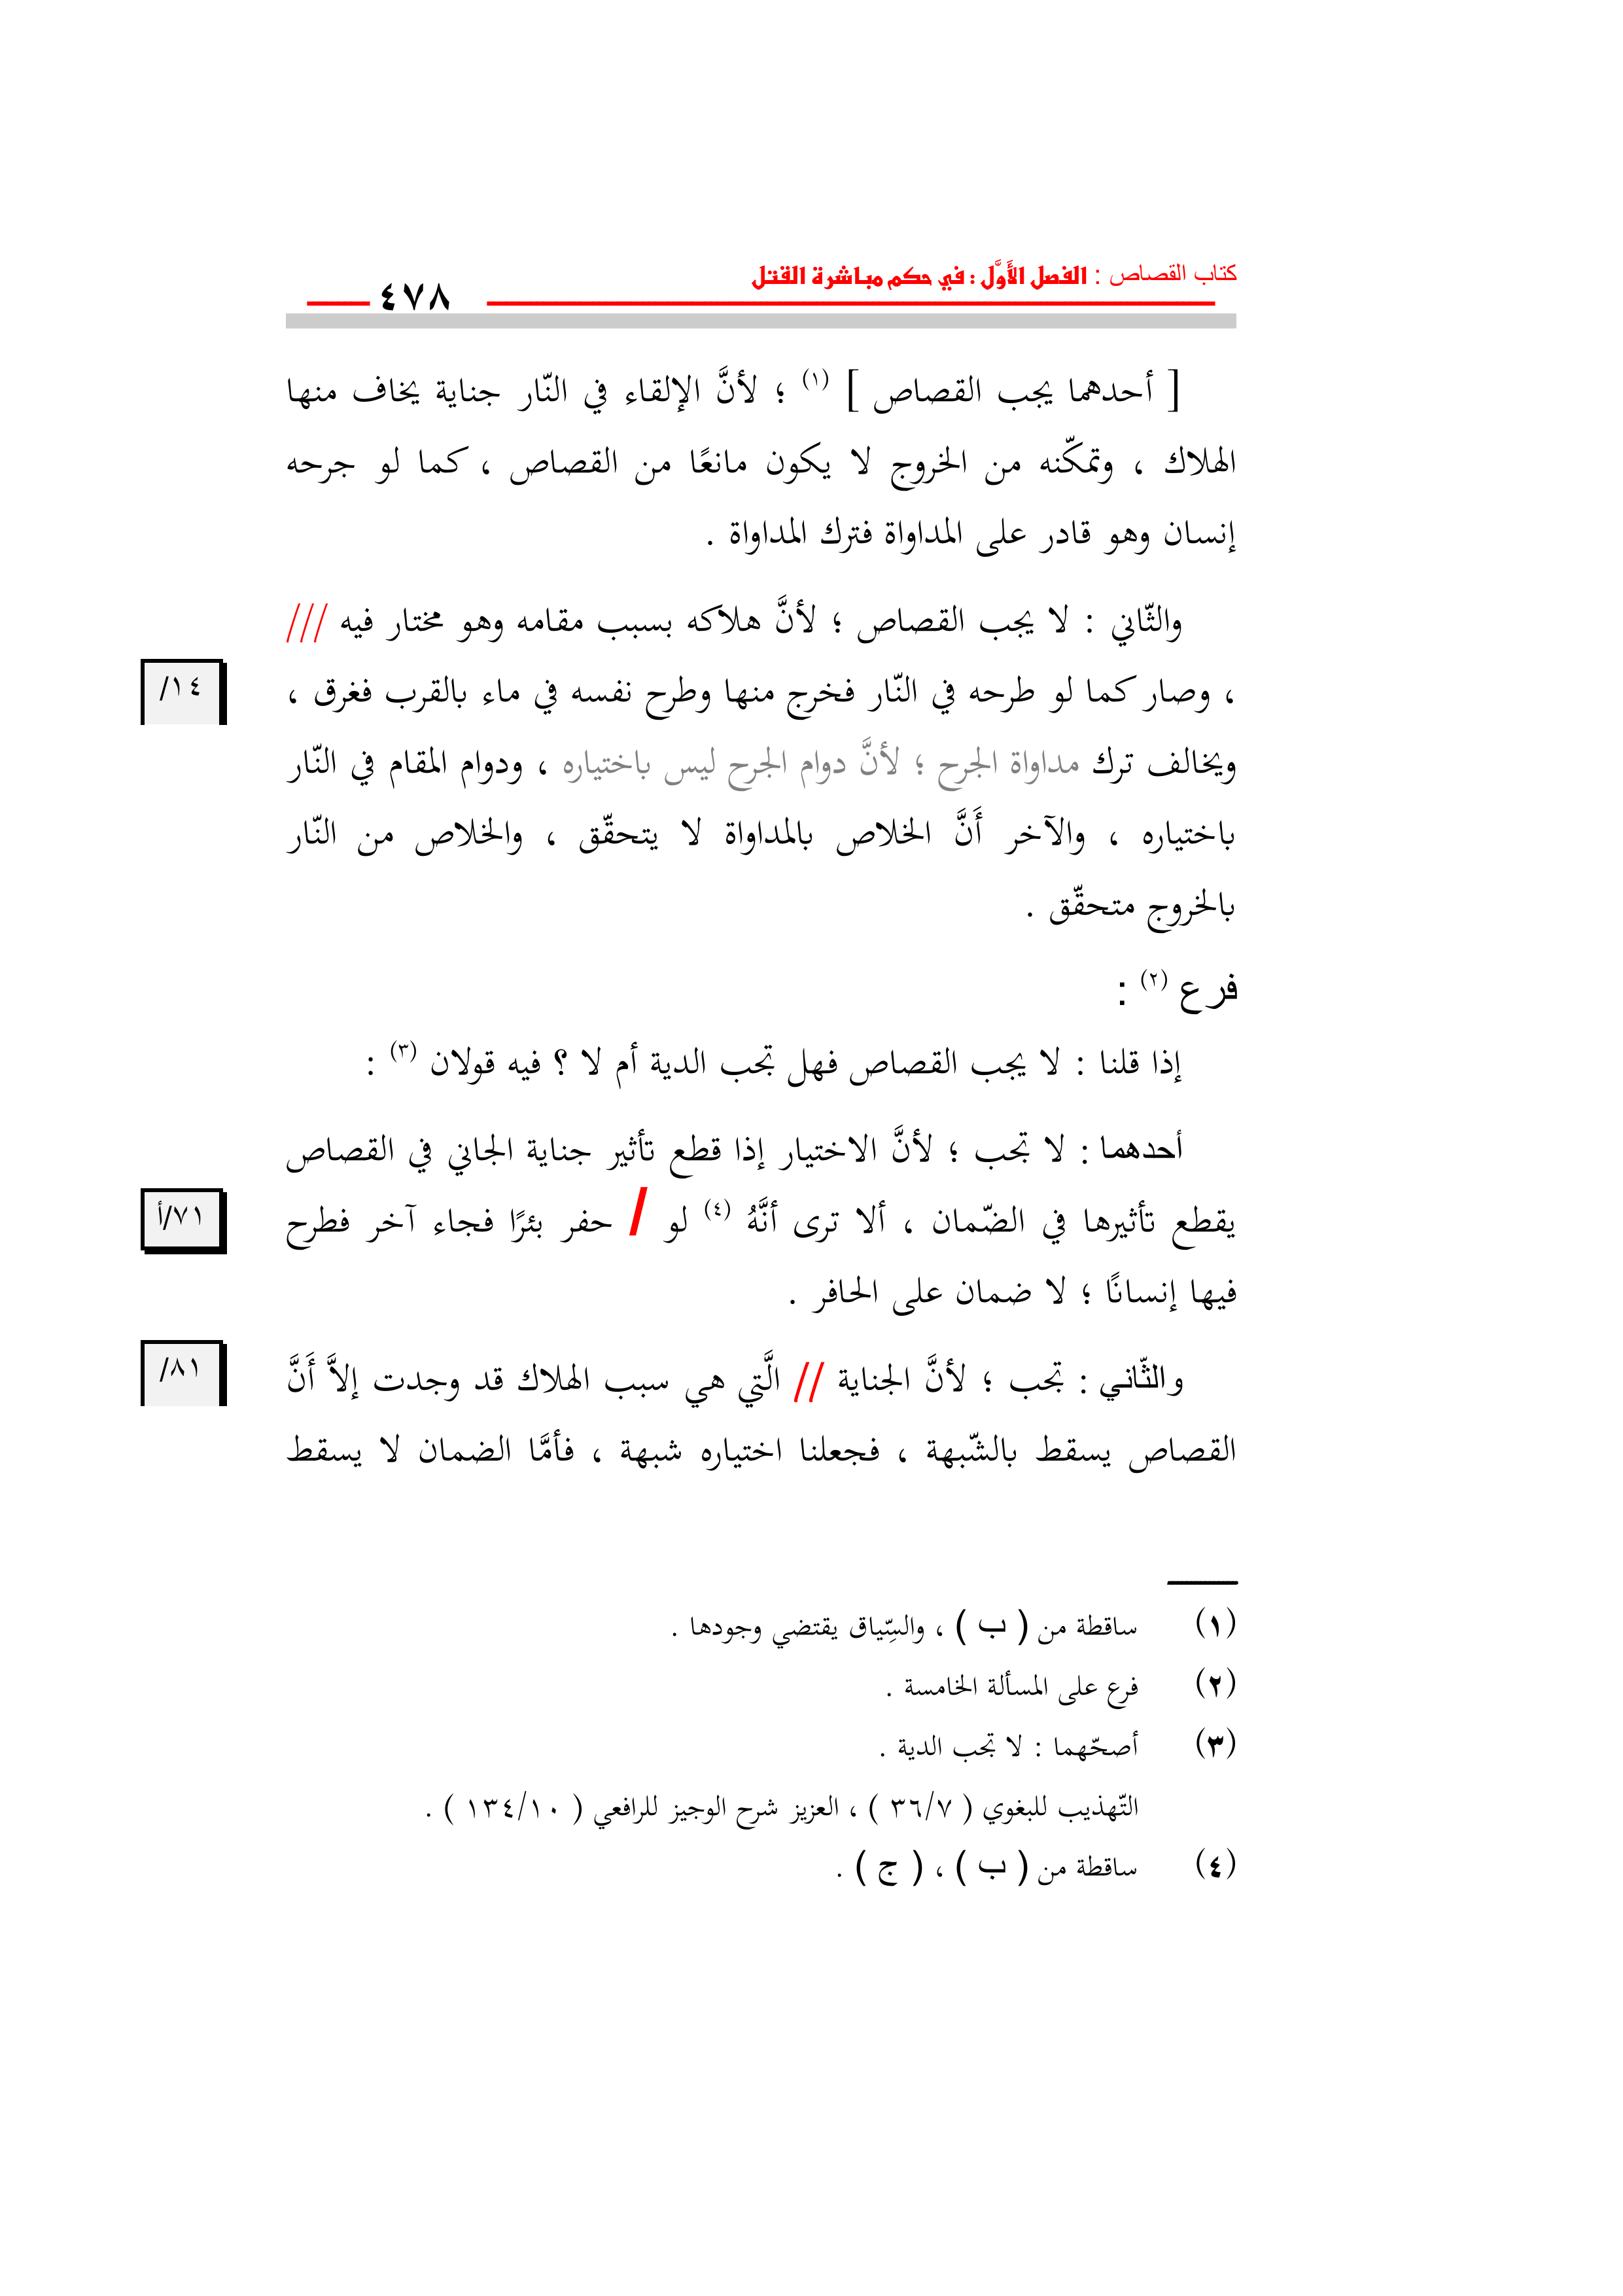 كتاب القصاص : الفصل الأَوَّل : في حكم مباشرة القتل
٤٧٨
[ أحدهما يجب القصاص ] (١) ؛ لأنَّ الإلقاء في النّار جناية يخاف منها
الهلاك ، وتمكّنه من الخروج لا يكون مانعًا من القصاص ، كما لو جرحه
إنسان وهو قادر على المداواة فترك المداواة .
والثّاني : لا يجب القصاص ؛ لأنَّ هلاكه بسبب مقامه وهو مختار فيه ///
١٤/
، وصار كما لو طرحه في النّار فخرج منها وطرح نفسه في ماء بالقرب فغرق ،
ويخالف ترك مداواة الجرح ؛ لأنَّ دوام الجرح ليس باختياره ، ودوام المقام في النّار
باختياره ، والآخر أَنَّ الخلاص بالمداواة لا يتحقّق ، والخلاص من النّار
بالخروج متحقّق .
فرع (٢) :
إذا قلنا : لا يجب القصاص فهل تجب الدية أم لا ؟ فيه قولان (٣) :
أحدهما : لا تجب ؛ لأنَّ الاختيار إذا قطع تأثير جناية الجاني في القصاص
يقطع تأثيرها في الضّمان ، ألا ترى أنَّهُ (٤) لو / حفر بئرًا فجاء آخر فطرح
٧١/أ
فيها إنسانًا ؛ لا ضمان على الحافر .
والثّاني : تجب ؛ لأنَّ الجناية // الَّتي هي سبب الهلاك قد وجدت إلاَّ أَنَّ
٨١/
القصاص يسقط بالشّبهة ، فجعلنا اختياره شبهة ، فأمَّا الضمان لا يسقط
(١) ساقطة من ( ب ) ، والسِّياق يقتضي وجودها .
(٢) فرع على المسألة الخامسة .
(٣) أصحّهما : لا تجب الدية .
التّهذيب للبغوي ( ٣٦/٧ ) ، العزيز شرح الوجيز للرافعي ( ١٣٤/١٠ ) .
(٤) ساقطة من ( ب ) ، ( ج ) .